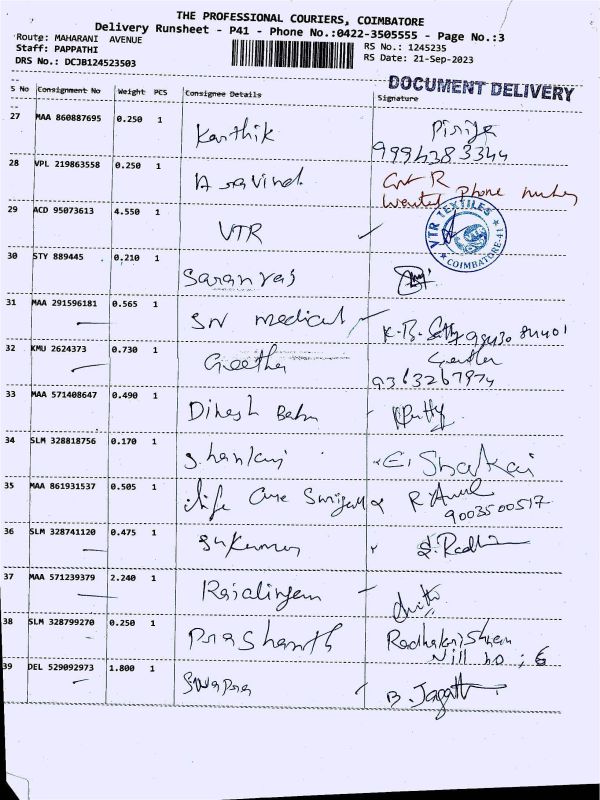 THE PROFESSIONAL COURIERS, COIMBATORE
Delivery Runsheet - P41 - Phone No.:0422-3505555 - Page No.:3
Route: MAHARANI AVENUE
RS No.: 1245235
Staff: PAPPATHI
RS Date: 21-Sep-2023
DRS No.: DCJB124523503
DOCUMENT DELIVERY
S No Consignment No Weight PCS Consignee Details Signature
27 MAA 860887695 0.250 1 Karthik
9994383344
28 VPL 219863558 0.250 1 Aravind
Wanted Phone number
29 ACD 95073613 4.550 1 VTR
VTR TEXTILES
COIMBATORE-41
30 STY 889445 0.210 1 Saranyas
31 MAA 291596181 0.565 1 SN medical
K.B. 98430 84401
32 KMU 2624373 0.730 1 Geetha
9363267974
33 MAA 571408647 0.490 1 Dinesh Babu
34 SLM 328818756 0.170 1
35 MAA 861931537 0.505 1 life Care Surgical
9003500517
36 SLM 328741120 0.475 1 Sukumar
37 MAA 571239379 2.240 1 Rajalingam
38 SLM 328799270 0.250 1 Prashanth Radhakrishnan
39 DEL 529092973 1.800 1 Swapna B. Jagath